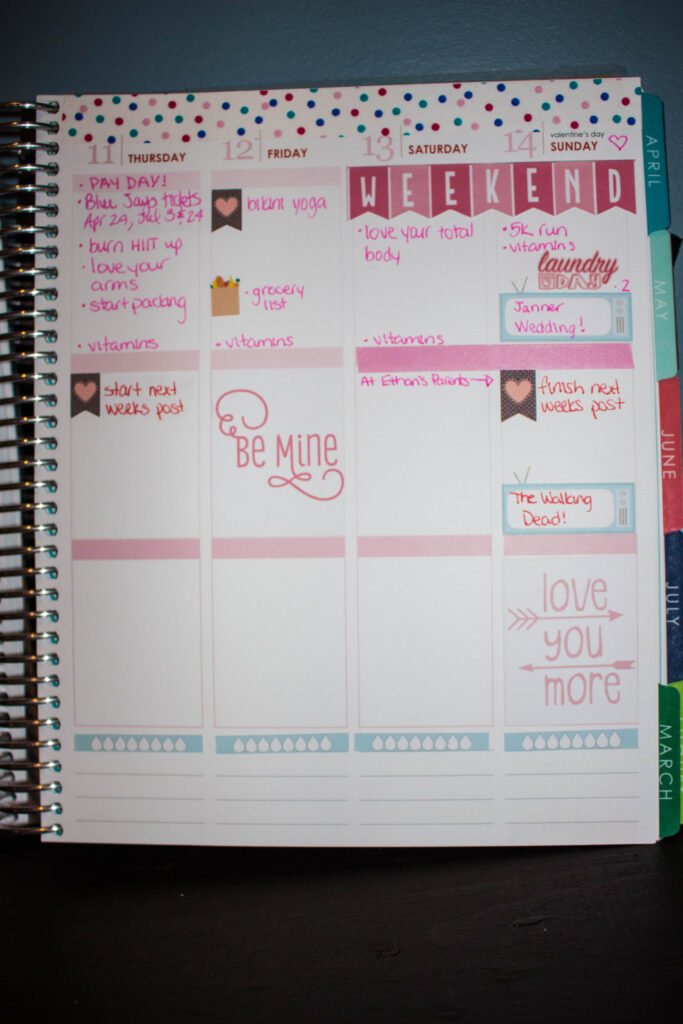 11 THURSDAY
12 FRIDAY
13 SATURDAY
14 valentine's day
SUNDAY
WEEKEND
• PAY DAY!
• Blue Jays tickets
Apr 29, Jul 3 & 24
• burn HIIT up
• love your
arms
• start packing
• vitamins
start next
weeks post
bikini yoga
• grocery
list
• vitamins
Be Mine
• love your total
body
• vitamins
At Ethan's Parents
• 5K run
• vitamins
laundry
DAY
• 2
Janner
Wedding!
finish next
weeks post
The Walking
Dead!
love
you
more
APRIL
MAY
JUNE
JULY
MARCH